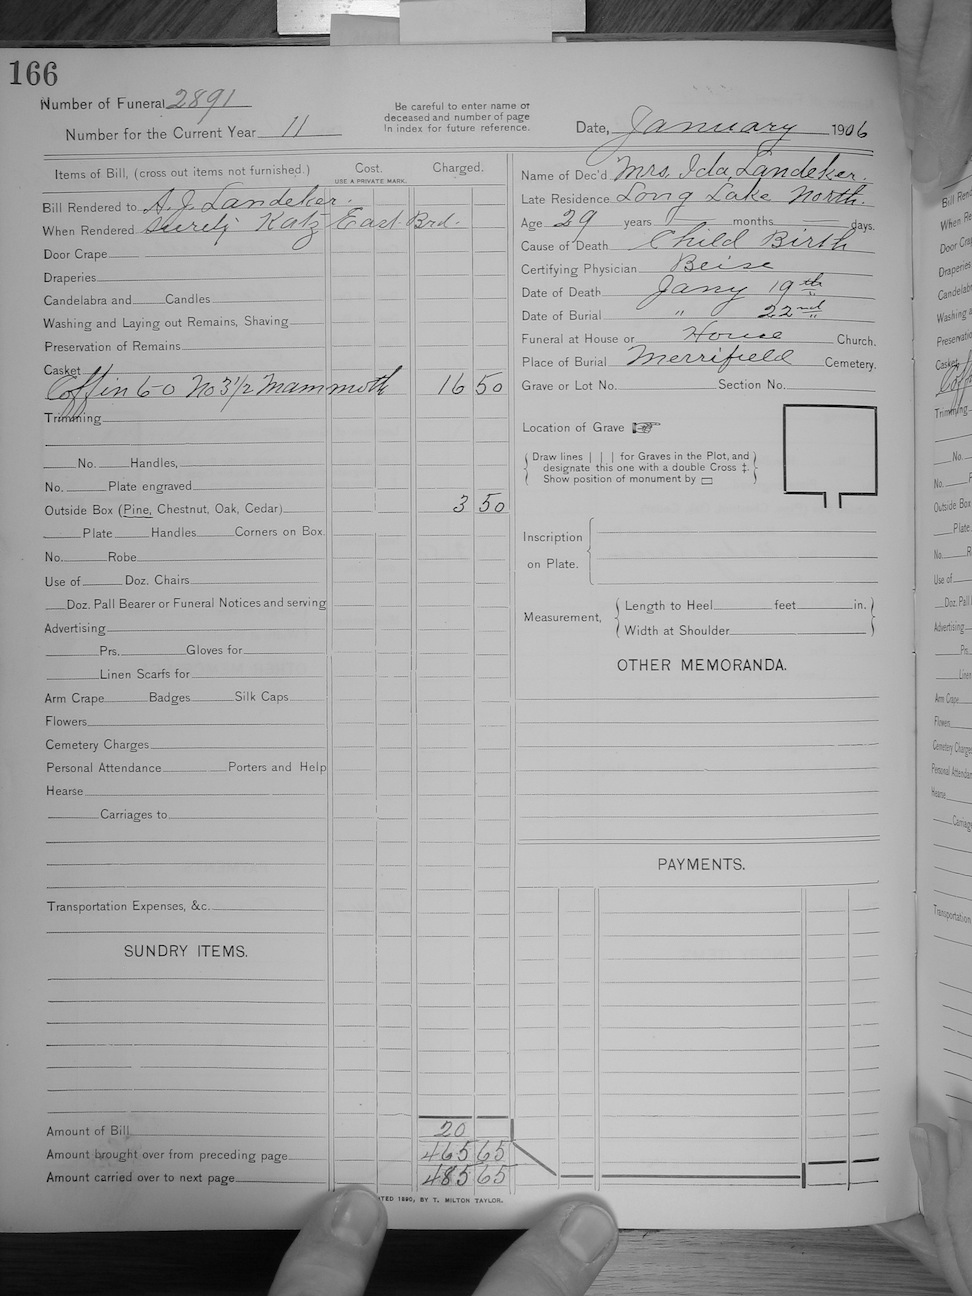 166
Number of Funeral 2891
Number for the Current Year 11
Be careful to enter name of
deceased and number of page
In index for future reference.
Date, January 1906
Items of Bill, (cross out items not furnished.) Cost. Charged.
USE A PRIVATE MARK.
Bill Rendered to A. J. Landeker.
When Rendered Surely Katz East. Brd.
Door Crape
Draperies
Candelabra and Candles
Washing and Laying out Remains, Shaving
Preservation of Remains
Casket
Coffin 6-0 No 3 1/2 Mammoth 16 50
Trimming
No. Handles,
No. Plate engraved
Outside Box (Pine, Chestnut, Oak, Cedar) 3 50
Plate Handles Corners on Box.
No. Robe
Use of Doz. Chairs
Doz. Pall Bearer or Funeral Notices and serving
Advertising
Prs. Gloves for
Linen Scarfs for
Arm Crape Badges Silk Caps
Flowers
Cemetery Charges
Personal Attendance Porters and Help
Hearse
Carriages to
Transportation Expenses, &c.
SUNDRY ITEMS.
Amount of Bill 20
Amount brought over from preceding page 465 65
Amount carried over to next page 485 65
Name of Dec'd Mrs. Ida Landeker.
Late Residence Long Lake North.
Age 29 years months days.
Cause of Death Child Birth
Certifying Physician Beise
Date of Death Jany 19th
Date of Burial " 22nd
Funeral at House or House Church.
Place of Burial Merrifield Cemetery.
Grave or Lot No. Section No.
Location of Grave
Draw lines | | | for Graves in the Plot, and
designate this one with a double Cross ‡.
Show position of monument by ▭
Inscription
on Plate.
Measurement, Length to Heel feet in.
Width at Shoulder
OTHER MEMORANDA.
PAYMENTS.
TED 1890, BY T. MILTON TAYLOR.